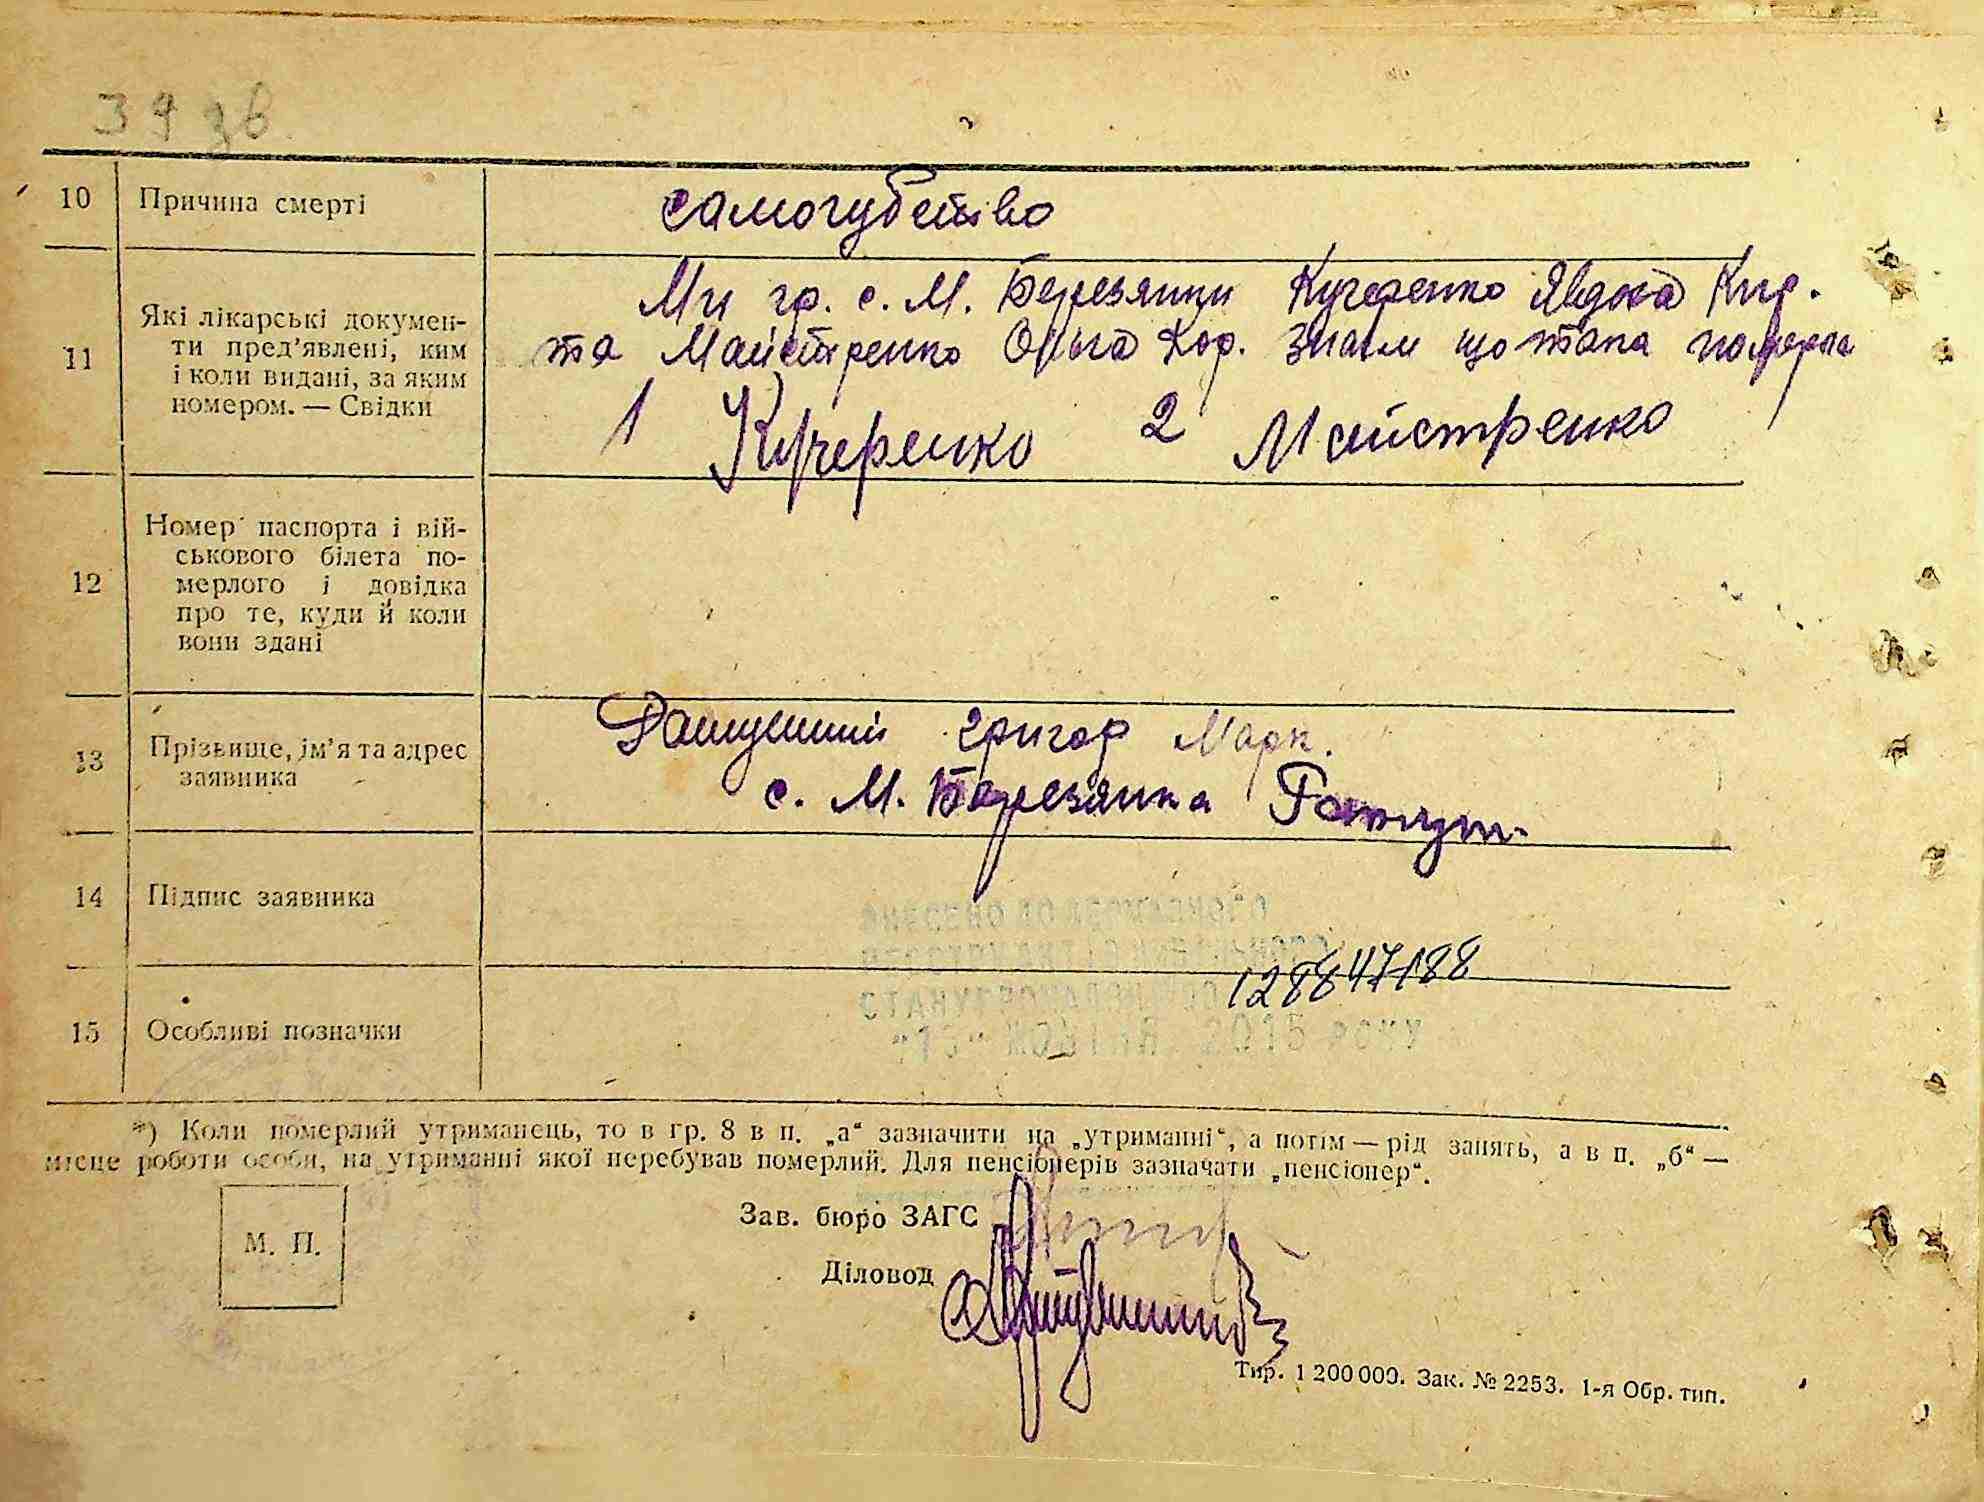 39 зв
10 Причина смерті самогубство
Ми гр. с. М. Березянки Кучеренко Явдоха Кир.
та Майстренко Ольга Кор. знаєм що така померла
1 Кучеренко 2 Майстренко
11 Які лікарські докумен-
ти пред'явлені, ким
і коли видані, за яким
номером. — Свідки
12 Номер паспорта і вій-
ськового білета по-
мерлого і довідка
про те, куди й коли
вони здані
13 Прізвище, ім'я та адрес
заявника
Григор Марк.
с. М. Березянка
14 Підпис заявника
ВНЕСЕНО ДО ДЕРЖАВНОГО
РЕЄСТРУ АКТІВ ЦИВІЛЬНОГО
СТАНУ ГРОМАДЯН ЗА № 128847188
ЖОВТНЯ 2015 РОКУ
15 Особливі позначки
*) Коли померлий утриманець, то в гр. 8 в п. „а“ зазначити на „утриманні“, а потім — рід занять, а в п. „б“ —
місце роботи особи, на утриманні якої перебував померлий. Для пенсіонерів зазначати „пенсіонер“.
М. П.
Зав. бюро ЗАГС
Діловод
Тир. 1 200 000. Зак. № 2253. 1-я Обр. тип.